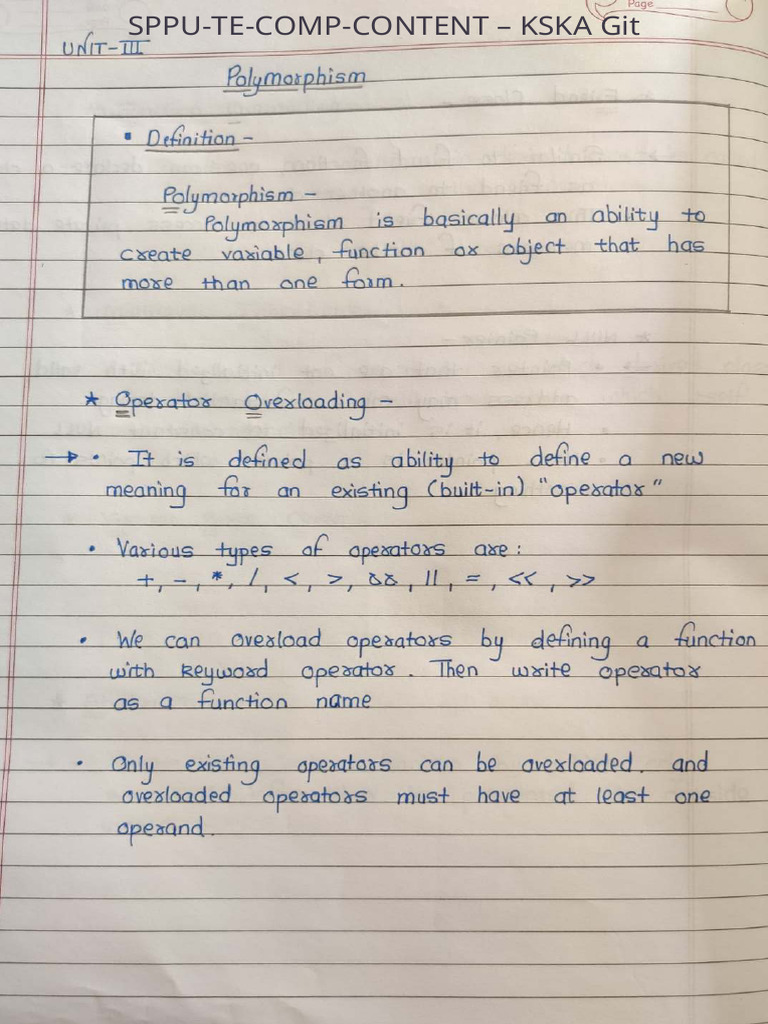 SPPU-TE-COMP-CONTENT – KSKA Git
Page
UNIT-III
Polymorphism
• Definition -
Polymorphism -
Polymorphism is basically an ability to
create variable, function or object that has
more than one form.
* Operator Overloading -
→ • It is defined as ability to define a new
meaning for an existing (built-in) "operator"
• Various types of operators are:
+, -, *, /, <, >, &&, ||, =, <<, >>
• We can overload operators by defining a function
with keyword operator. Then write operator
as a function name
• Only existing operators can be overloaded. and
overloaded operators must have at least one
operand.